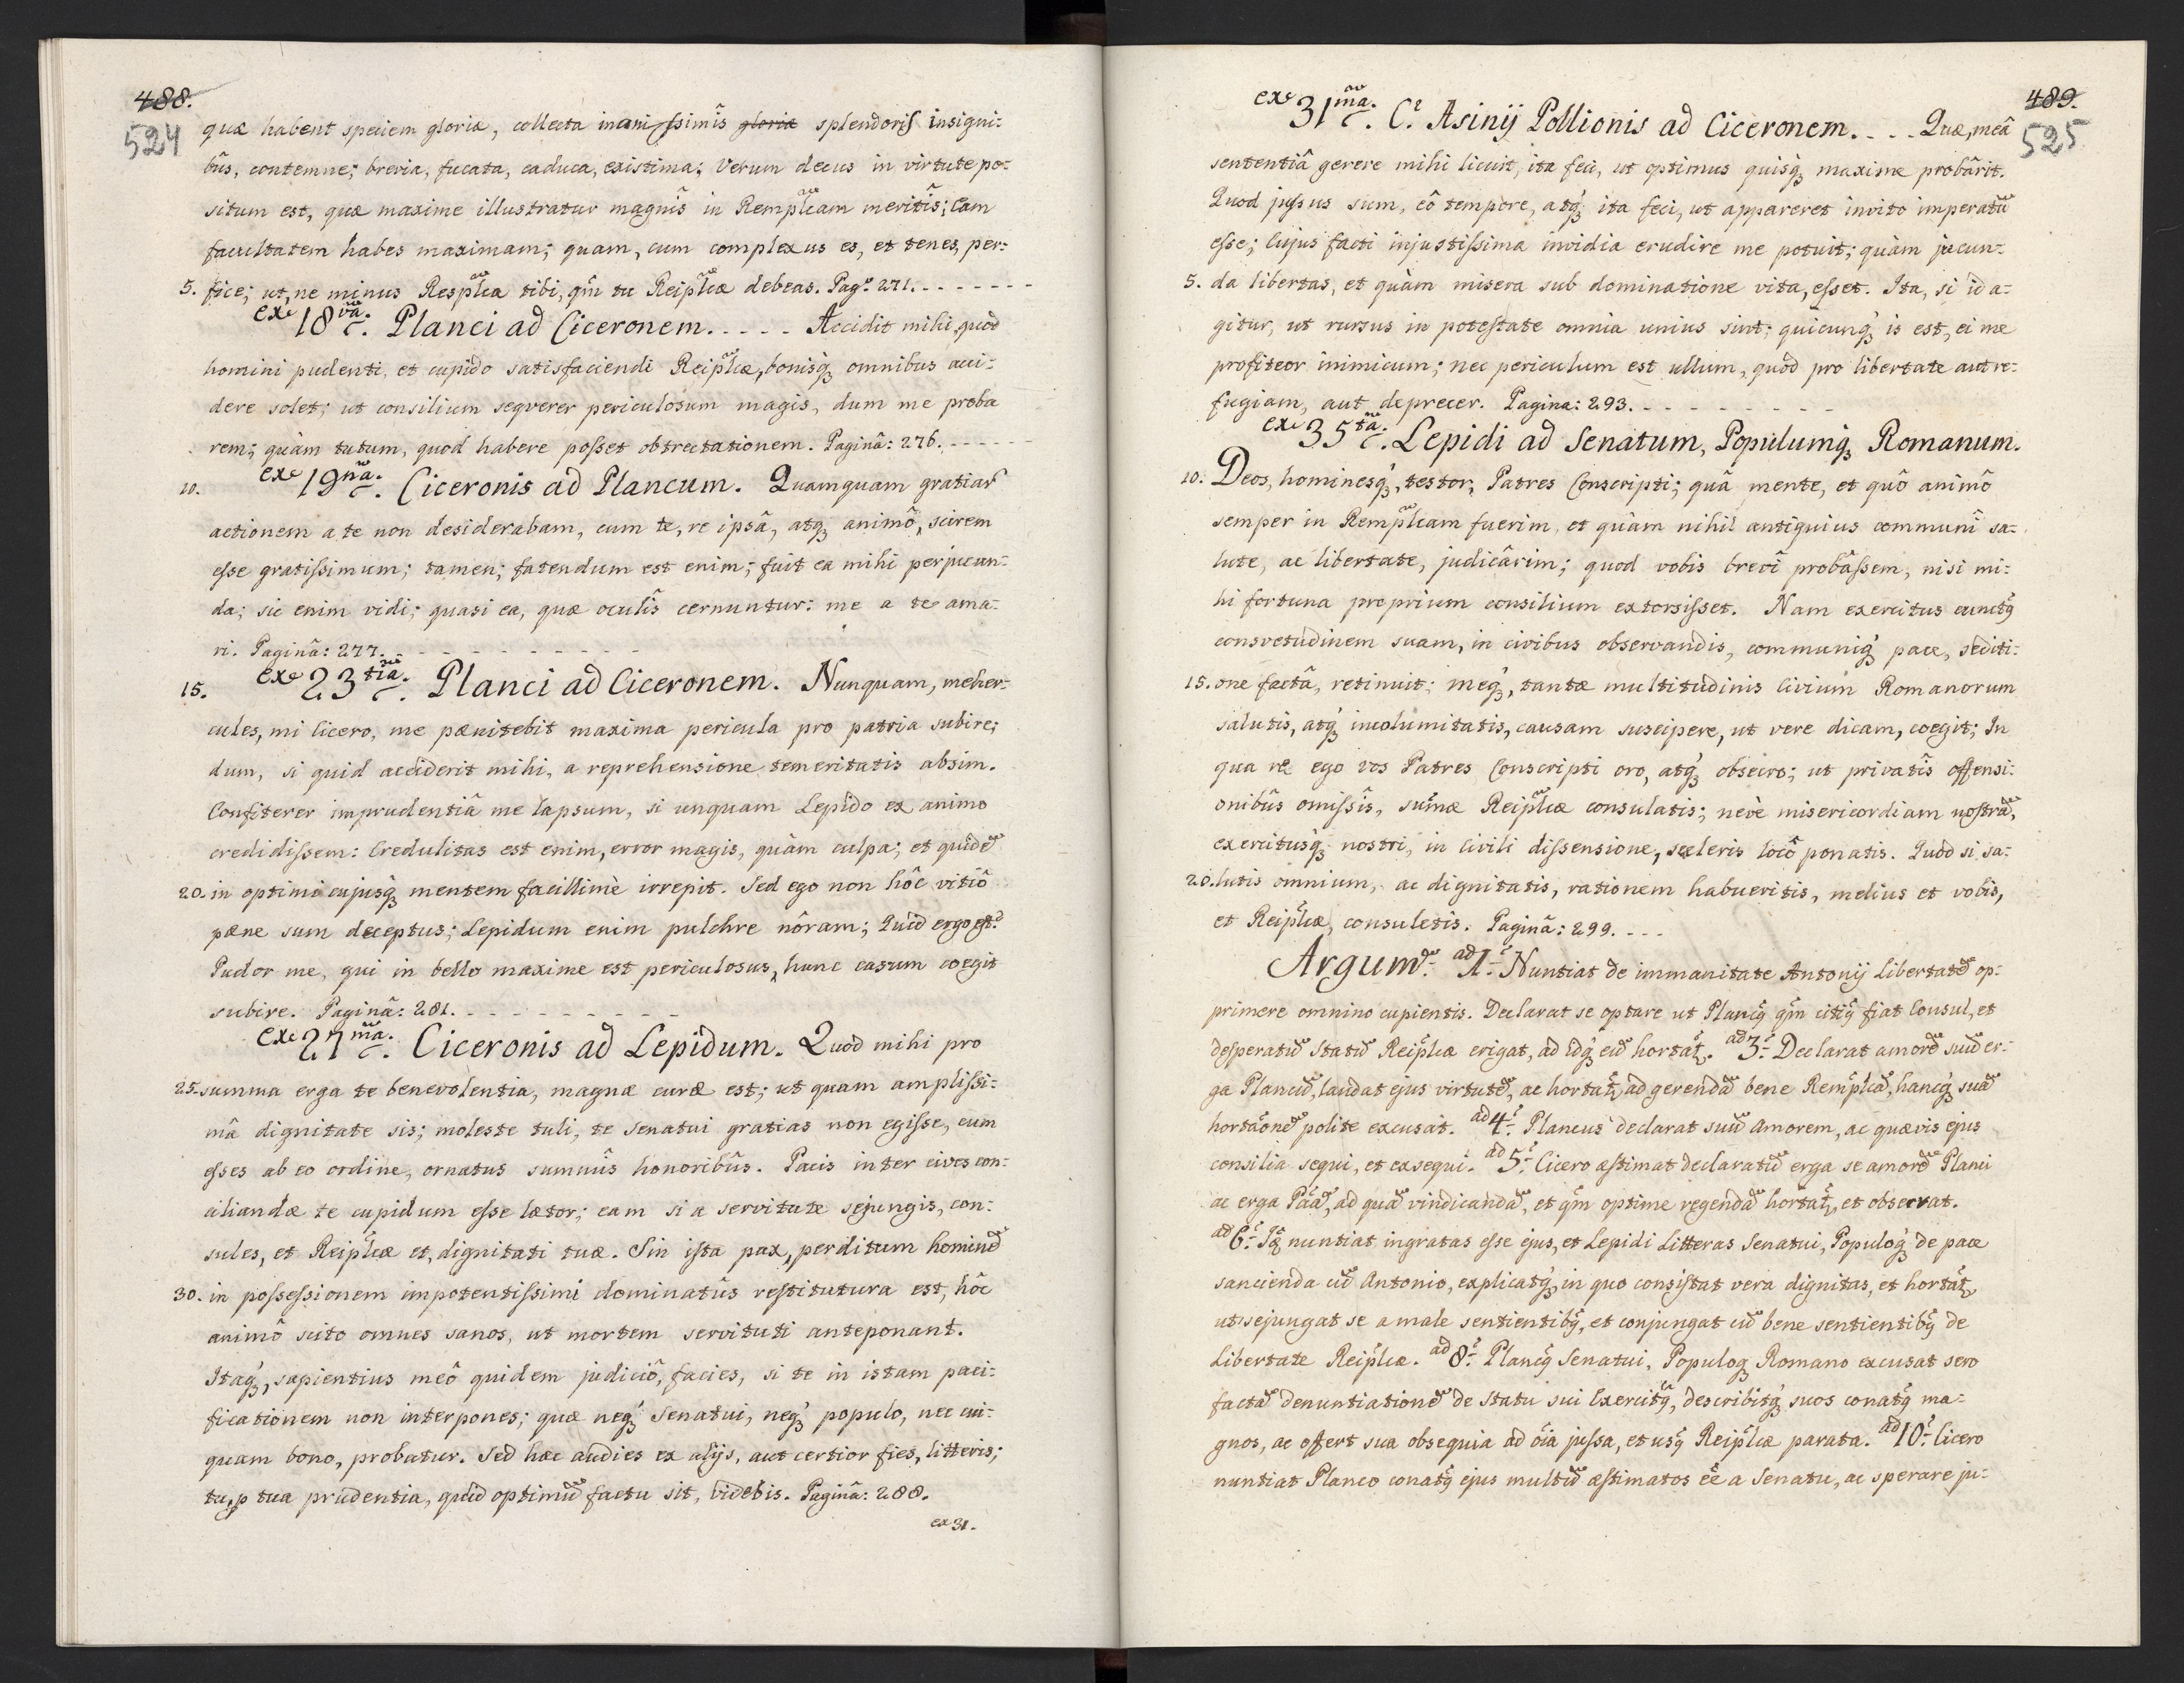 488.
524
quæ habent speciem gloriæ, collecta inanissimîs gloriæ splendoris insigni:
bûs, contemne; brevia, fucata, caduca, existima; Verum decus in virtute po:
situm est, quæ maxime illustratur magnîs in Remplcam meritîs; Eam
facultatem habes maximam; quam, cum complexus es, et tenes, per:
5. fice; ut, ne minus Resplca tibi, qm̃ tu Reiplcæ debeas. Pag: 271. - - - - - - -
ex 18va. Planci ad Ciceronem. - - - - Accidit mihi, quod
homini pudenti, et cupido satisfaciendi Reiplcæ, bonisq; omnibus acci:
dere solet; ut consilium seqverer periculosum magis, dum me proba
rem; quàm tutum, quod habere posset obtrectationem. Paginâ: 276. - - - - - -
10. ex 19na. Ciceronis ad Plancum. Quamquam gratiar̃
actionem a te non desiderabam, cum te, re ipsâ, atq; animô, scirem
esse gratissimum; tamen; fatendum est enim; fuit ea mihi perjucun:
da; sic enim vidi; quasi ea, quæ oculîs cernuntur: me a te ama:
ri. Paginâ: 277. - - - - - - - - - -
15. ex 23tia. Planci ad Ciceronem. Nunquam, meher:
cules, mi Cicero, me pænitebit maxima pericula pro patria subire;
dum, si quid acciderit mihi, a reprehensione temeritatis absim.
Confiterer imprudentiâ me lapsum, si unquam Lepido ex animo
credidissem: Credulitas est enim, error magis, quàm culpa; et quidẽ
20. in optimi cujusq; mentem facillimè irrepit. Sed ego non hôc vitiô
pæne sum deceptus; Lepidum enim pulchre nôram; Quid ergo est?
Pudor me, qui in bello maxime est periculosus, hunc casum coegit
subire. Paginâ: 281. - - - - - - - - - -
ex 27ma. Ciceronis ad Lepidum. Quod mihi pro
25. summa erga te benevolentia, magnæ curæ est; ut quam amplissi:
mâ dignitate sis; moleste tuli, te Senatui gratias non egisse, cum
esses ab eo ordine, ornatus summîs honoribûs. Pacis inter cives con:
ciliandæ te cupidum esse lætor; eam si a servitute sejungis, con:
sules, et Reiplcæ et, dignitati tuæ. Sin ista pax, perditum hominẽ
30. in possessionem impotentissimi dominatûs restitutura est, hôc
animô scito omnes sanos, ut mortem servituti anteponant.
Itaq;, sapientius meô quidem judiciô, facies, si te in istam paci:
ficationem non interpones; quæ neq; Senatui, neq; populo, nec cui:
quam bono, probatur. Sed hæc audies ex alijs, aut certior fies, litteris;
tu, p tua prudentia, quid optimũ factu sit, videbis. Paginâ: 288.
ex 31.
489.
525
ex 31ma. C. Asinij Pollionis ad Ciceronem. - - - Quæ, meâ
sententiâ gerere mihi licuit, ita feci, ut optimus quisq; maxime probârit.
Quod jussus sum, eô tempore, atq; ita feci, ut appareret invito imperatũ
esse; Cujus facti injustissima invidia erudire me potuit; quàm jucun:
5. da libertas, et quàm misera sub dominatione vita, esset. Ita, si id a:
gitur, ut rursus in potestate omnia unius sint; quicunq; is est, ei me
profiteor inimicum; nec periculum est ullum, quod pro libertate aut re:
fugiam, aut deprecer. Pagina: 293. - - - - - - - - -
ex 35ta. Lepidi ad Senatum, Populumq; Romanum.
10. Deos, hominesq;, testor, Patres Conscripti; quâ mente, et quô animô
semper in Remplcam fuerim, et quàm nihil antiquius communi sa:
lute, ac libertate, judicârim; quod vobis brevî probâssem, nisi mi:
hi fortuna proprium consilium extorsisset. Nam exercitus cunctq
consvetudinem suam, in civibus observandis, communiq; pace, sediti:
15. one factâ, retinuit; meq;, tantæ multitudinis Civium Romanorum
salutis, atq; incolumitatis, causam suscipere, ut vere dicam, coegit; In
qua re ego vos Patres Conscripti oro, atq; obsecro; ut privatîs offensi:
onibûs omissîs, sum̃æ Reiplcæ consulatis; nevè misericordiam nostrã,
exercitusq; nostri, in civili dissensione, sceleris locô ponatis. Quod si sa:
20. lutis omnium, ac dignitatis, rationem habueritis, melius et vobis,
et Reiplcæ, consuletis. Paginâ: 299. - - -
Argum. ad 1. Nuntiat de immanitate Antonij Libertatẽ op:
primere omnino cupientis. Declarat se optare ut Plancq qm̃ citiq fiat Consul, et
desperatũ statũ Reiplcæ erigat, ad idq; eũ hortat. ad 3. Declarat amorẽ suũ er:
ga Plancũ, laudat ejus virtutẽ, ac hortat, ad gerendã bene Remplcã, hancq; suã
hortãonẽ polite excusat. ad 4. Plancus declarat suũ amorem, ac quævis ejus
consilia sequi, et exsequi. ad 5. Cicero æstimat declaratũ erga se amorẽ Planci
ac erga Pãã, ad quã vindicandã, et qm̃ optime regendã hortat, et observat.
ad 6. Iq nuntiat ingratas esse ejus, et Lepidi Litteras Senatui, Populoq; de pace
sancienda cũ Antonio, explicatq; in quo consistat vera dignitas, et hortat,
ut sejungat se a male sentientibq, et conjungat cũ bene sentientibq de
Libertate Reiplcæ. ad 8. Plancq Senatui, Populoq Romano excusat sero
factã denuntiationẽ de statu sui Exercitq, describitq; suos conatq ma:
gnos, ac offert sua obsequia ad oĩa jussa, et usq Reiplcæ parata. ad 10. Cicero
nuntiat Planco conatq ejus multũ æstimatos eẽ a Senatu, ac sperare ju: